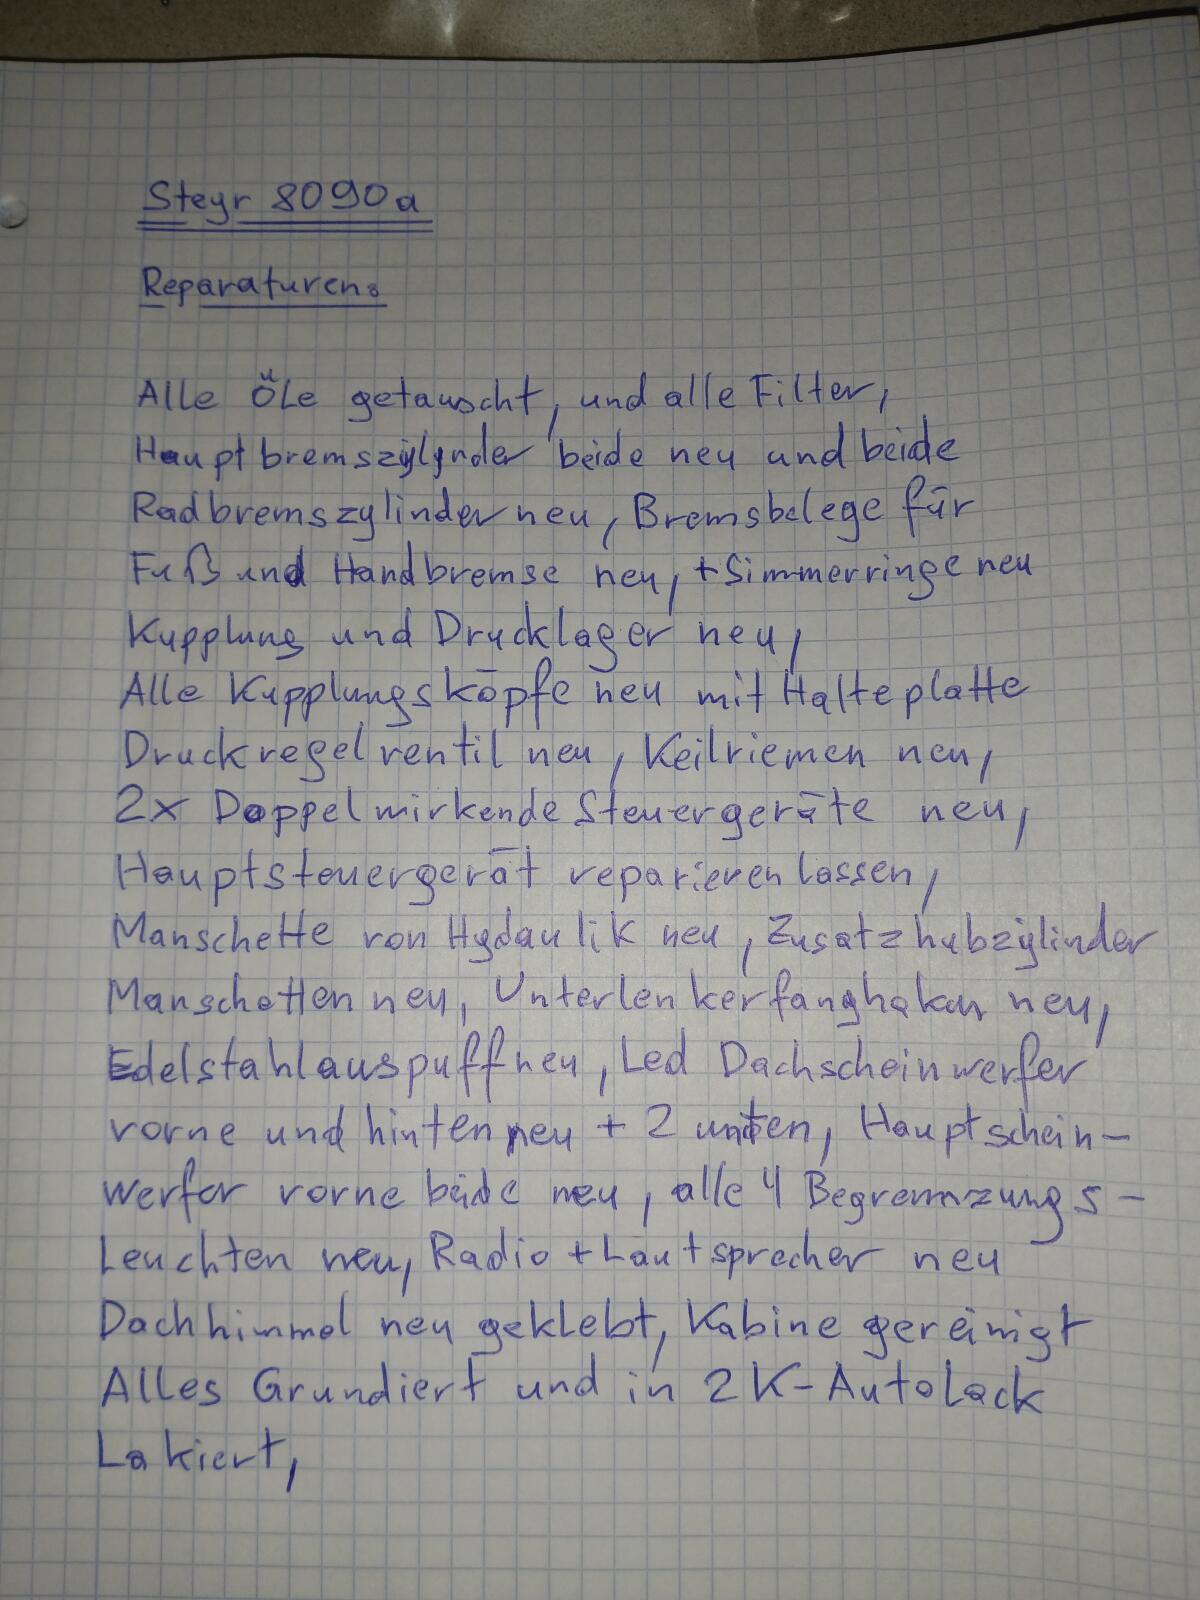 Steyr 8090a
Reparaturen:
Alle Öle getauscht, und alle Filter,
Hauptbremszÿlynder beide neu und beide
Radbremszylinder neu, Bremsbelege für
Fuß und Handbremse neu, + Simmerringe neu
Kupplung und Drucklager neu,
Alle Kupplungsköpfe neu mit Halteplatte
Druckregelventil neu, Keilriemen neu,
2x Doppelwirkende Steuergeräte neu,
Hauptsteuergerät reparieren lassen,
Manschette von Hydaulik neu, Zusatzhubzÿlinder
Manschetten neu, Unterlenkerfanghaken neu,
Edelstahlauspuff neu, Led Dachscheinwerfer
vorne und hinten neu + 2 unten, Hauptschein-
werfer vorne beide neu, alle 4 Begrenzungs-
Leuchten neu, Radio + Lautsprecher neu
Dachhimmel neu geklebt, Kabine gereinigt
Alles Grundiert und in 2K-Autolack
Lakiert,